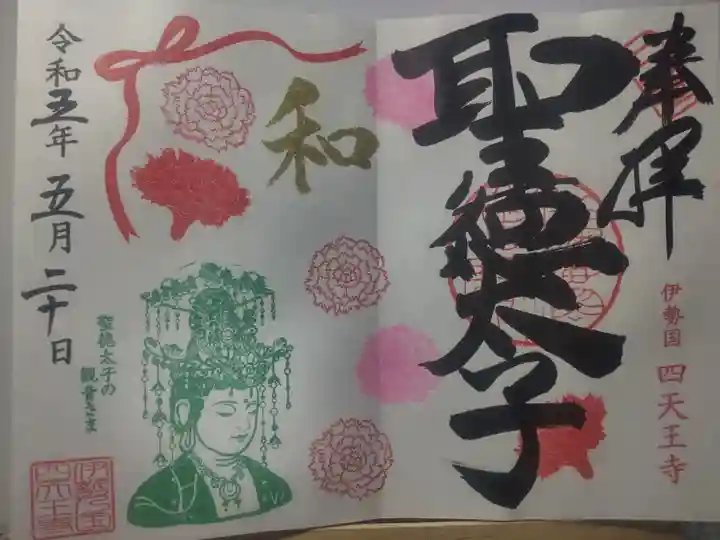 奉拝
聖徳太子
伊勢国 四天王寺
和
令和五年 五月 二十日
聖徳太子の
観音さま